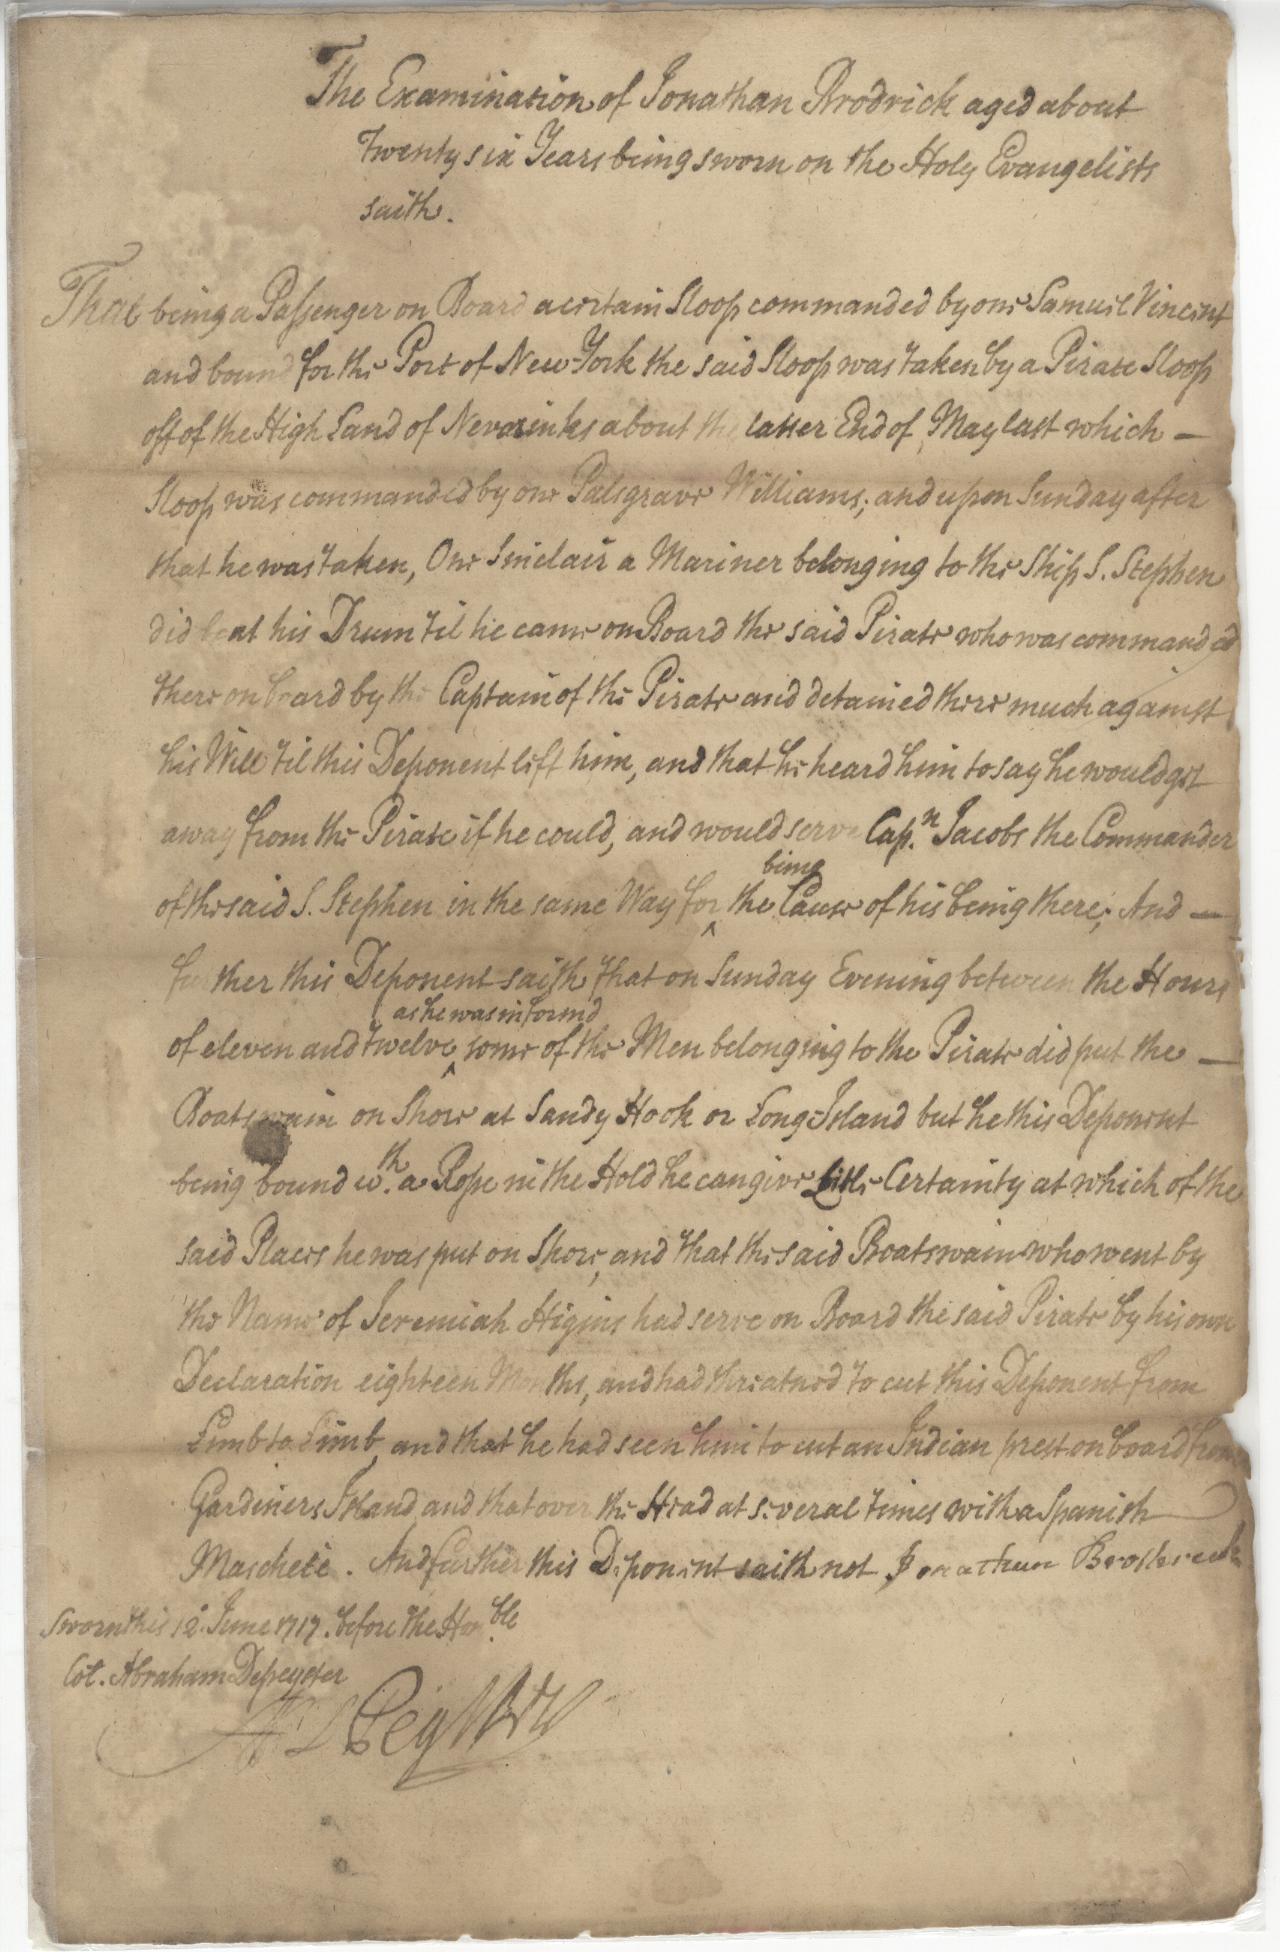 The Examination of Jonathan Brodrick aged about
Twenty six Years being sworn on the Holy Evangelists
saith.
That being a Passenger on Board a certain Sloop commanded by one Samuel Vincent
and bound for the Port of New-York the said Sloop was taken by a Pirate Sloop
off of the High Land of Neversinks about the latter End of May last which —
Sloop was commanded by one Palsgrave Williams; and upon Sunday after
that he was taken, One Sinclair a Mariner belonging to the Ship S. Stephen
did beat his Drum til he came on Board the said Pirate who was commanded
there on board by the Captain of the Pirate and detained there much against
his Will til this Deponent left him, and that he heard him to say he would get
away from the Pirate if he could, and would serve Cap.n Jacobs the Commander
being
of the said S. Stephen in the same Way for ^ the Cause of his being there; And —
further this Deponent saith, that on Sunday Evening between the Hours
as he was informd
of eleven and twelve ^ some of the Men belonging to the Pirate did put the —
Boatswain on Shore at Sandy Hook or Long-Island but he this Deponent
being bound w.th a Rope in the Hold he can give little Certainty at which of the
said Places he was put on Shore, and that the said Boatswain who went by
the Name of Jeremiah Higins had serve on Board the said Pirate by his own
Declaration eighteen Months, and had threatned to cut this Deponent from
Limb to Limb, and that he had seen him to cut an Indian prest on board from
Gardiners Island and that over the Head at several times with a Spanish
Maschete. And further this Deponent saith not Jonathan
Sworn this 12 June 1717. before the Hon.ble
Col. Abraham Depeyster